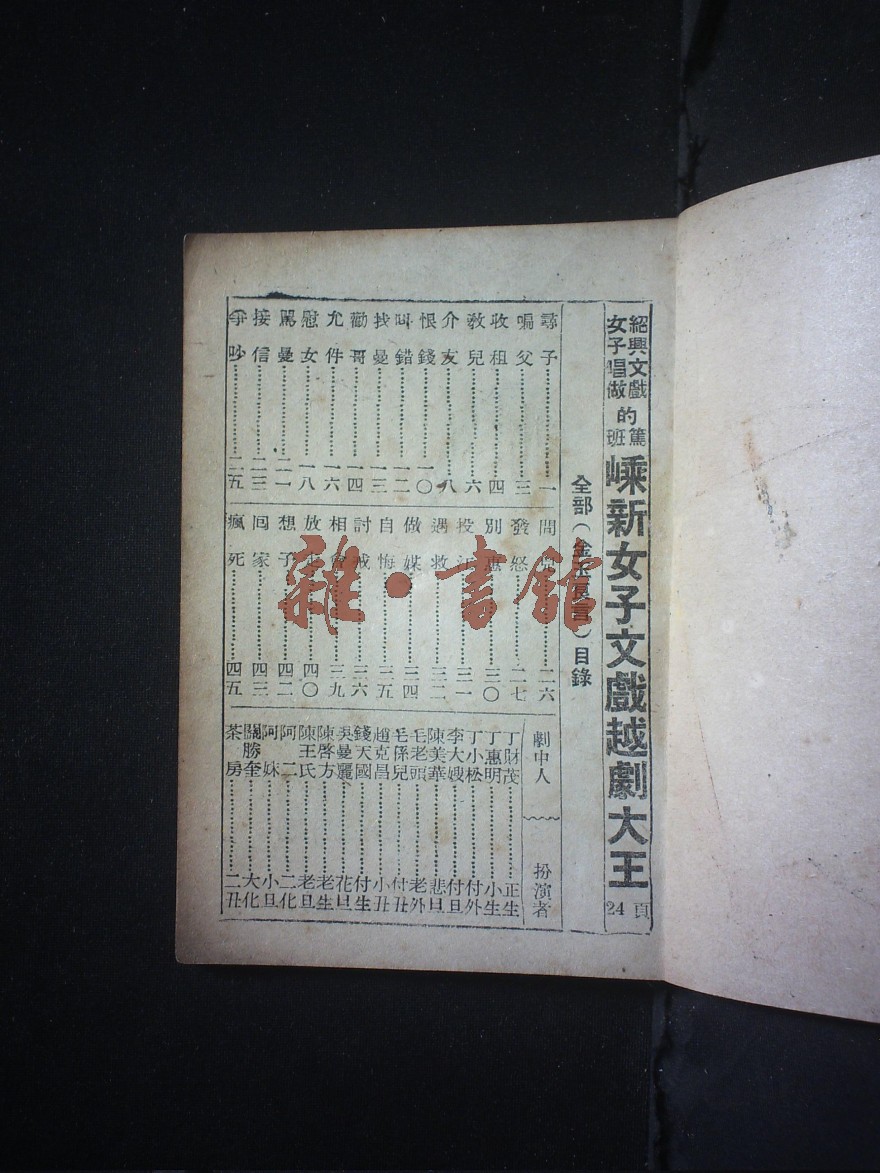 紹興文戲
女子唱做
的篤
班
嵊新女子文戲越劇大王
24頁
全部(金玉良言)目錄
尋子一
騙父三
收租四
教兒六
介友八
恨錢一〇
叫錯一二
找曼一三
勸哥一四
允件一六
慰女一八
罵曼二一
接信二三
爭吵二五
問 二六
發怒二七
別惠三〇
投 三一
遇救三二
做媒三四
自悔三五
討戒三六
相會三九
放走四〇
想子四二
回家四三
瘋死四五
劇中人 扮演者
丁財茂正生
丁惠明小生
丁小松付外
李大嫂付旦
陳美華悲旦
毛老頭老外
毛孫兒付丑
趙克昌小丑
錢天國付生
吳曼麗花旦
陳啓方老生
陳王氏老旦
阿二二化
阿妹小旦
關勝奎大化
茶房二丑
雜·書館